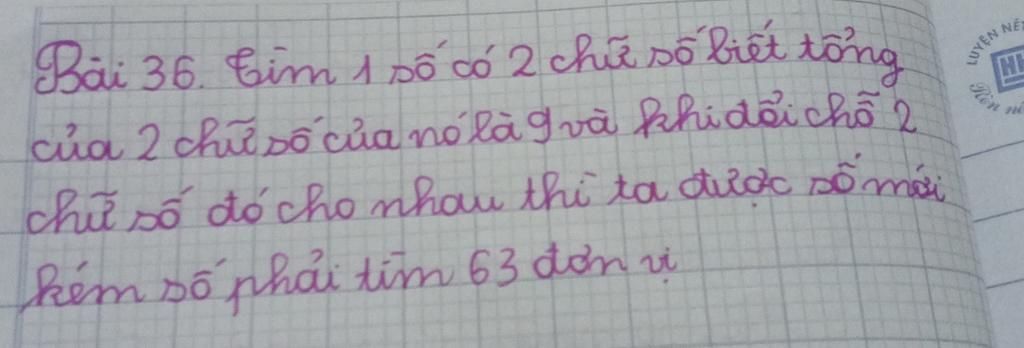 Bài 36. Tìm 1 số có 2 chữ số biết tổng
của 2 chữ số của nó là 9 và khi đổi chỗ 2
chữ số đó cho nhau thì ta được số mới
kém số phải tìm 63 đơn vị
LUYỆN NÉT